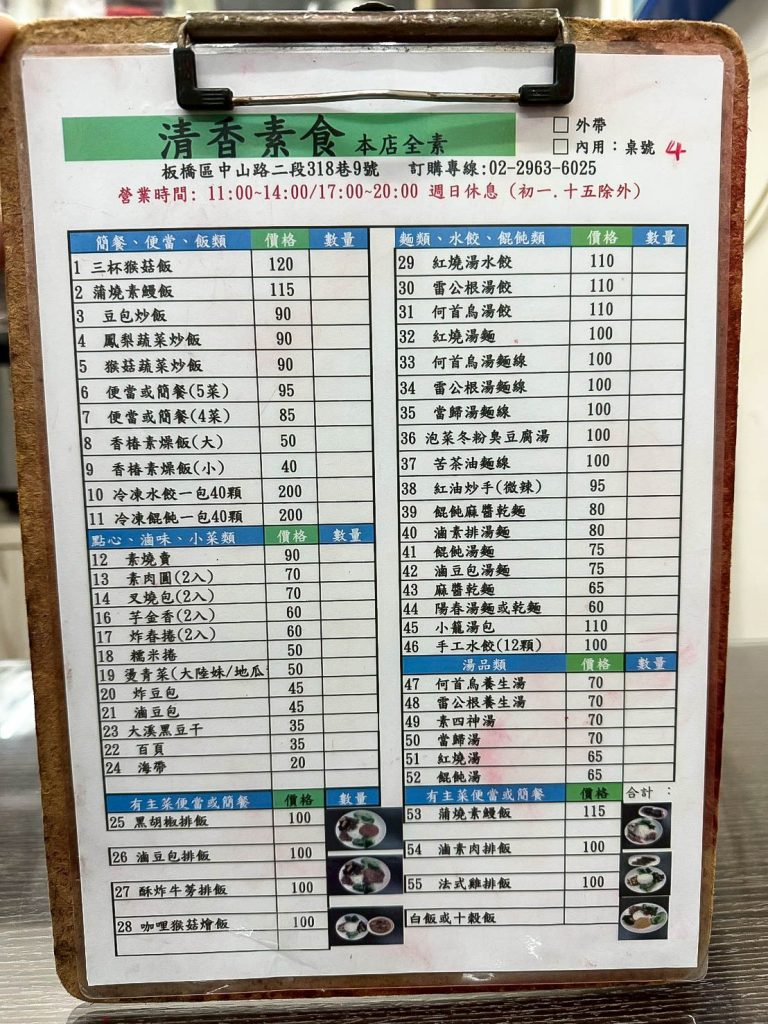 清香素食 本店全素
□ 外帶
□ 內用：桌號 4
板橋區中山路二段318巷9號 訂購專線:02-2963-6025
營業時間: 11:00~14:00/17:00~20:00 週日休息 (初一.十五除外)
簡餐、便當、飯類 價格 數量
1 三杯猴菇飯 120
2 蒲燒素鰻飯 115
3 豆包炒飯 90
4 鳳梨蔬菜炒飯 90
5 猴菇蔬菜炒飯 90
6 便當或簡餐(5菜) 95
7 便當或簡餐(4菜) 85
8 香椿素燥飯(大) 50
9 香椿素燥飯(小) 40
10 冷凍水餃一包40顆 200
11 冷凍餛飩一包40顆 200
點心、滷味、小菜類 價格 數量
12 素燒賣 90
13 素肉圓(2入) 70
14 叉燒包(2入) 70
16 芋金香(2入) 60
17 炸春捲(2入) 60
18 糯米捲 50
19 燙青菜(大陸妹/地瓜 50
20 炸豆包 45
21 滷豆包 45
23 大溪黑豆干 35
22 百頁 35
24 海帶 20
有主菜便當或簡餐 價格 數量
25 黑胡椒排飯 100
26 滷豆包排飯 100
27 酥炸牛蒡排飯 100
28 咖哩猴菇燴飯 100
麵類、水餃、餛飩類 價格 數量
29 紅燒湯水餃 110
30 雷公根湯餃 110
31 何首烏湯餃 110
32 紅燒湯麵 100
33 何首烏湯麵線 100
34 雷公根湯麵線 100
35 當歸湯麵線 100
36 泡菜冬粉臭豆腐湯 100
37 苦茶油麵線 100
38 紅油炒手(微辣) 95
39 餛飩麻醬乾麵 80
40 滷素排湯麵 80
41 餛飩湯麵 75
42 滷豆包湯麵 75
43 麻醬乾麵 65
44 陽春湯麵或乾麵 60
45 小籠湯包 110
46 手工水餃(12顆) 100
湯品類 價格 數量
47 何首烏養生湯 70
48 雷公根養生湯 70
49 素四神湯 70
50 當歸湯 70
51 紅燒湯 65
52 餛飩湯 65
有主菜便當或簡餐 價格 合計：
53 蒲燒素鰻飯 115
54 滷素肉排飯 100
55 法式雞排飯 100
白飯或十穀飯